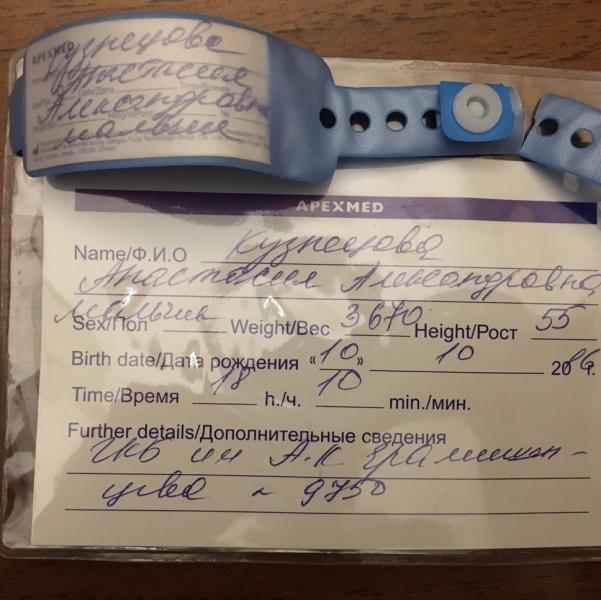 Кузнецова
APEXMED
Анастасия
Александровна
мальчик
APEXMED
Name/Ф.И.О Кузнецова
Анастасия Александровна
мальчик
Sex/Пол Weight/Вес 3670 Height/Рост 55
Birth date/Дата рождения «10» 10 20 г.
Time/Время 18 h./ч. 10 min./мин.
Further details/Дополнительные сведения
ГКБ им А.К Ерамишан-
цева ~ 9750